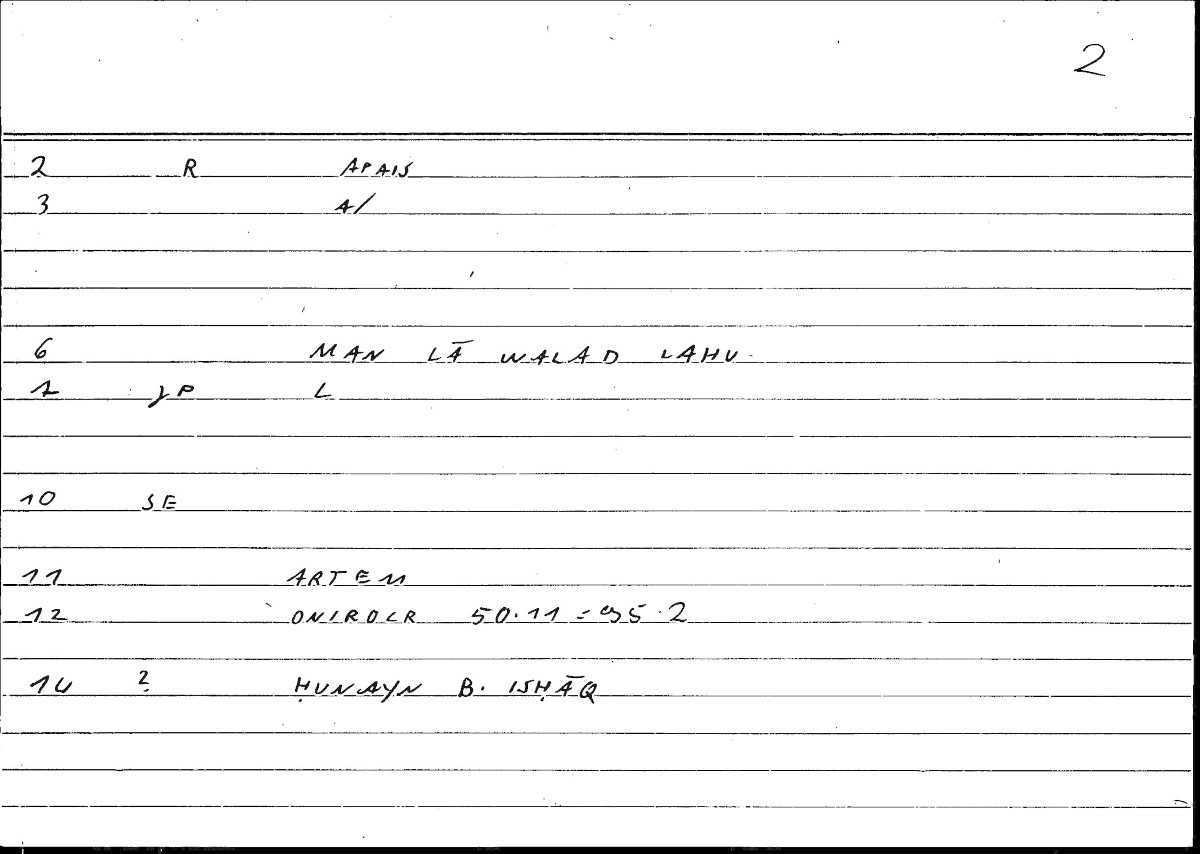 2
2 R APAIS
3 A/
6 MAN LĀ WALAD LAHU
7 γP L
10 SE
11 ARTEM
12 ONIROCR 50.11 = 95.2
14 ? ḤUNAYN B. ISḤĀQ